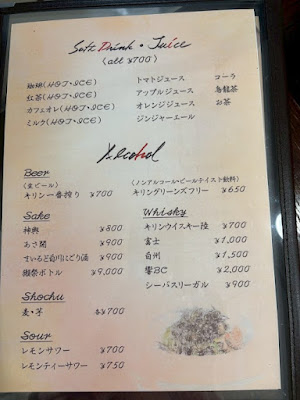 Soft Drink・Juice
(all ¥700)
珈琲(HOT・ICE) トマトジュース コーラ
紅茶(HOT・ICE) アップルジュース 烏龍茶
カフェオレ(HOT・ICE) オレンジジュース お茶
ミルク(HOT・ICE) ジンジャーエール
Alcohol
Beer
(生ビール) (ノンアルコール・ビールテイスト飲料)
キリン一番搾り ¥700 キリングリーンズフリー ¥650
Sake
神輿 ¥800
あさ開 ¥900
さいるど白川にごり酒 ¥900
獺祭ボトル ¥9,000
Whisky
キリンウイスキー陸 ¥700
富士 ¥1,000
白州 ¥1,500
響BC ¥2,000
シーバスリーガル ¥900
Shochu
麦・芋 各¥700
Sour
レモンサワー ¥700
レモンティーサワー ¥750